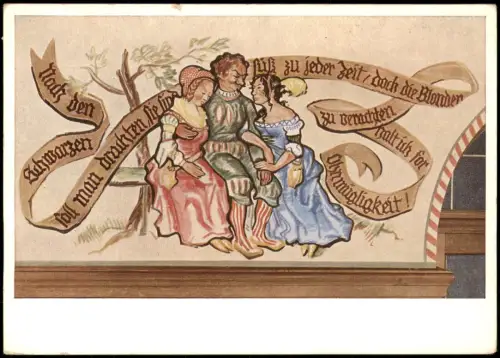 Nach den
Schwarzen
soll man trachten, sie
süß zu jeder Zeit / doch die Blonden
zu verachten
halt ich für
Unmöglichkeit!